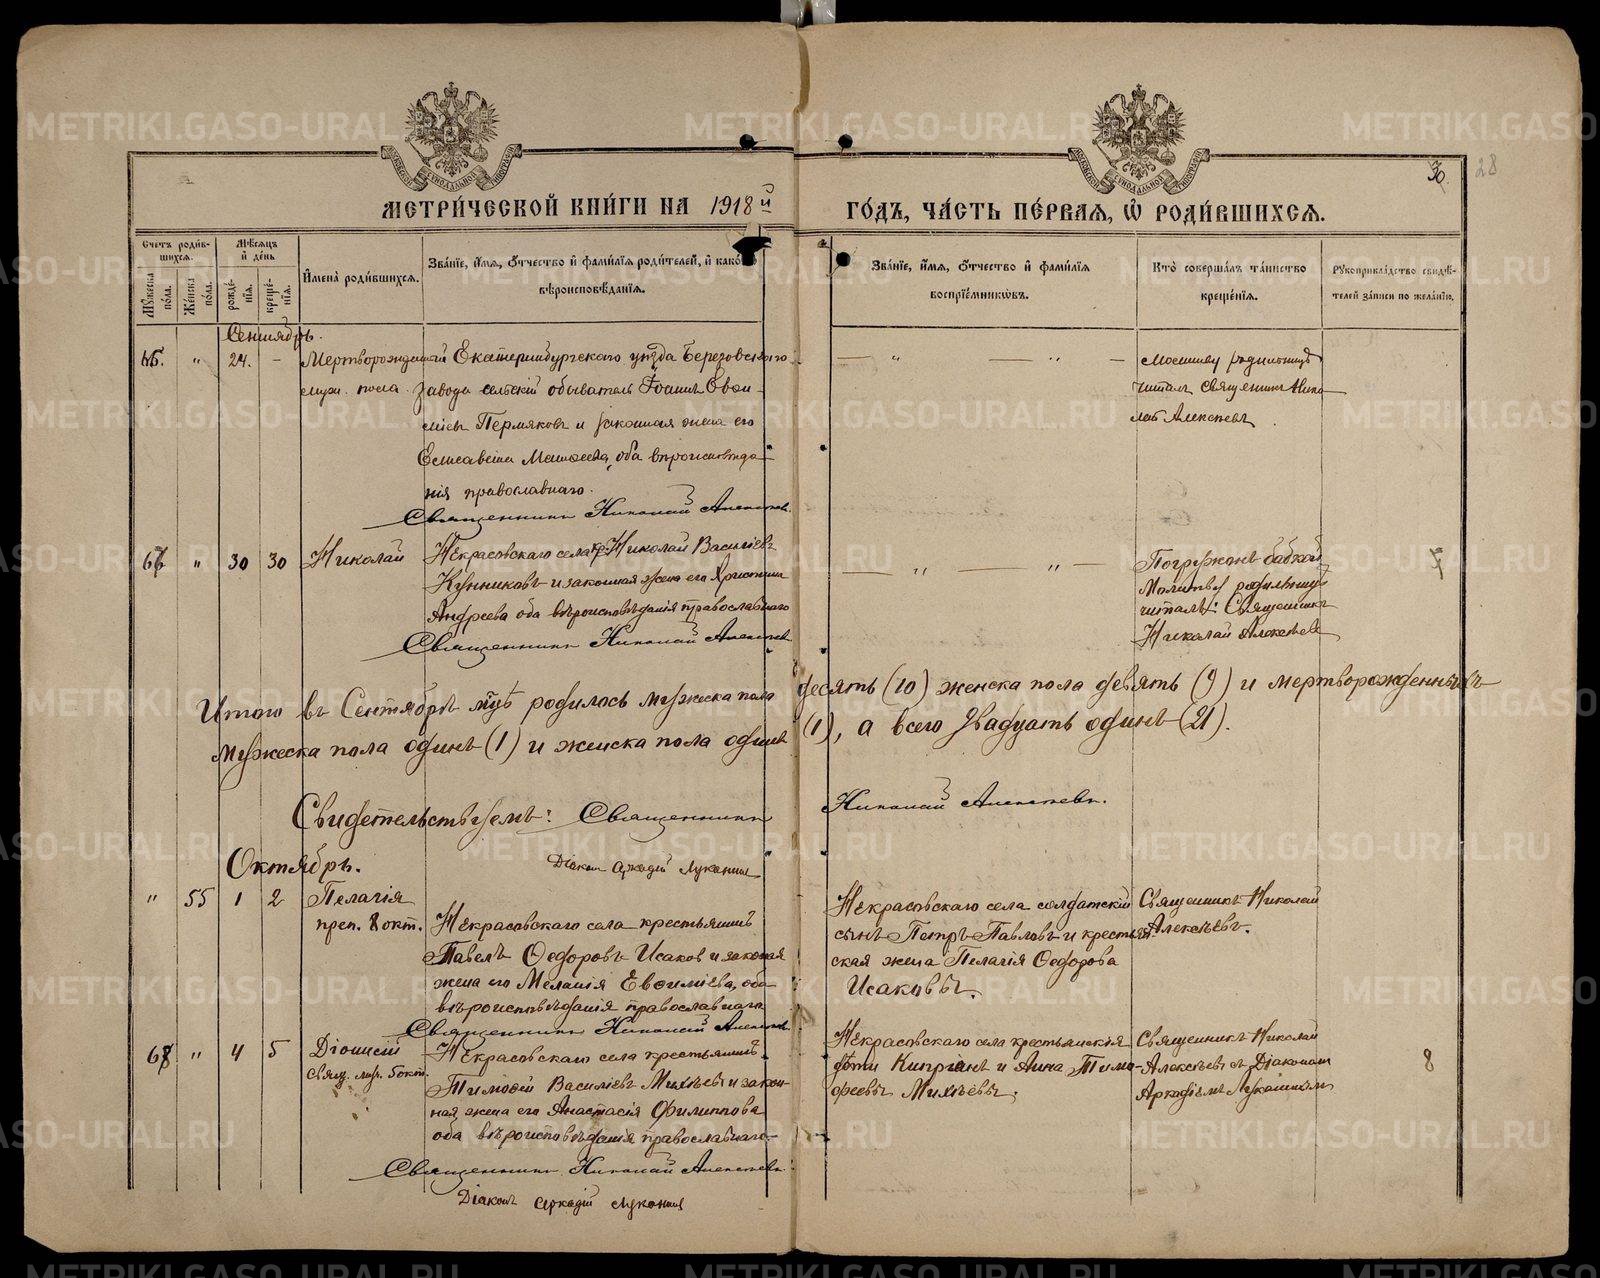 МЕТРИ́ЧЕСКОЙ КНИ́ГИ НА 1918й ГО́ДЪ, ЧА́СТЬ ПЕ́РВАѦ, Ѽ РОДИ́ВШИХСѦ.
30
28
Счетъ роди́в-
шихсѧ.
Му́жеска по́ла.
Же́нска по́ла.
Мѣ́сѧцъ
и҆ де́нь
рожде́-нїѧ.
креще́-нїѧ.
И҆мена̀ роди́вшихсѧ.
Зва́нїе, и҆́мѧ, ѻ҆́тчество и҆ фами́лїѧ роди́телей, и҆ како́гѡ
вѣроисповѣ́данїѧ.
Зва́нїе, и҆́мѧ, ѻ҆́тчество и҆ фами́лїѧ
воспрїе́мникѡвъ.
Кто̀ соверша́лъ та́инство
креще́нїѧ.
Рꙋкоприкла́дство свидѣ́-
телей за́писи по жела́нїю.
Сентябрь.
65. " 24. —
Мертворожденный
муж. пола.
Екатеринбургскаго уѣзда Березовскаго
завода сельскій обыватель Іоаннъ Евѳи-
міевъ Пермяковъ и законная жена его
Елисавета Матѳеева, оба вѣроисповѣда-
нія православнаго.
Священникъ Николай Алексѣевъ.
Молитву родильницѣ
читалъ Священникъ Нико
лай Алексѣевъ
66 " 30 30 Николай
Некрасовскаго села кр. Николай Василіевъ
Кунниковъ и законная жена его Христина
Андреева оба вѣроисповѣданія православнаго
Священникъ Николай Алексѣевъ
Погруженъ бабкой
Молитву родильницѣ
читалъ: Священникъ
Николай Алексѣевъ
7
Итого въ Сентябрѣ мцѣ родилось мужеска пола десять (10) женска пола девять (9) и мертворожденныхъ
мужеска пола одинъ (1) и женска пола одинъ (1), а всего двадцать одинъ (21).
Свидѣтельствуемъ: Священникъ Николай Алексѣевъ.
Діаконъ Аркадій Луканинъ
Октябрь.
" 55 1 2 Пелагія
преп. 8 окт.
Некрасовскаго села крестьянинъ
Павелъ Ѳедоровъ Исаковъ и законная
жена его Меланія Евѳиміева, оба
вѣроисповѣданія православнаго
Священникъ Николай Алексѣевъ
Некрасовскаго села солдатскій
сынъ Петръ Павловъ и крестьян-
ская жена Пелагія Ѳедорова
Исаковы.
Священникъ Николай
Алексѣевъ.
67 " 4 5 Діонисій
Свящ. муч. 5 окт.
Некрасовскаго села крестьянинъ
Тимоѳей Василіевъ Михѣевъ и закон-
ная жена его Анастасія Филиппова
оба вѣроисповѣданія православнаго
Священникъ Николай Алексѣевъ
Діаконъ Аркадій Луканинъ
Некрасовскаго села крестьянскія
дѣти Кипріанъ и Анна Тимо-
феевы Михѣевы.
Священникъ Николай
Алексѣевъ съ Діакономъ
Аркадіемъ Луканинымъ
8
METRIKI.GASO-URAL.RU